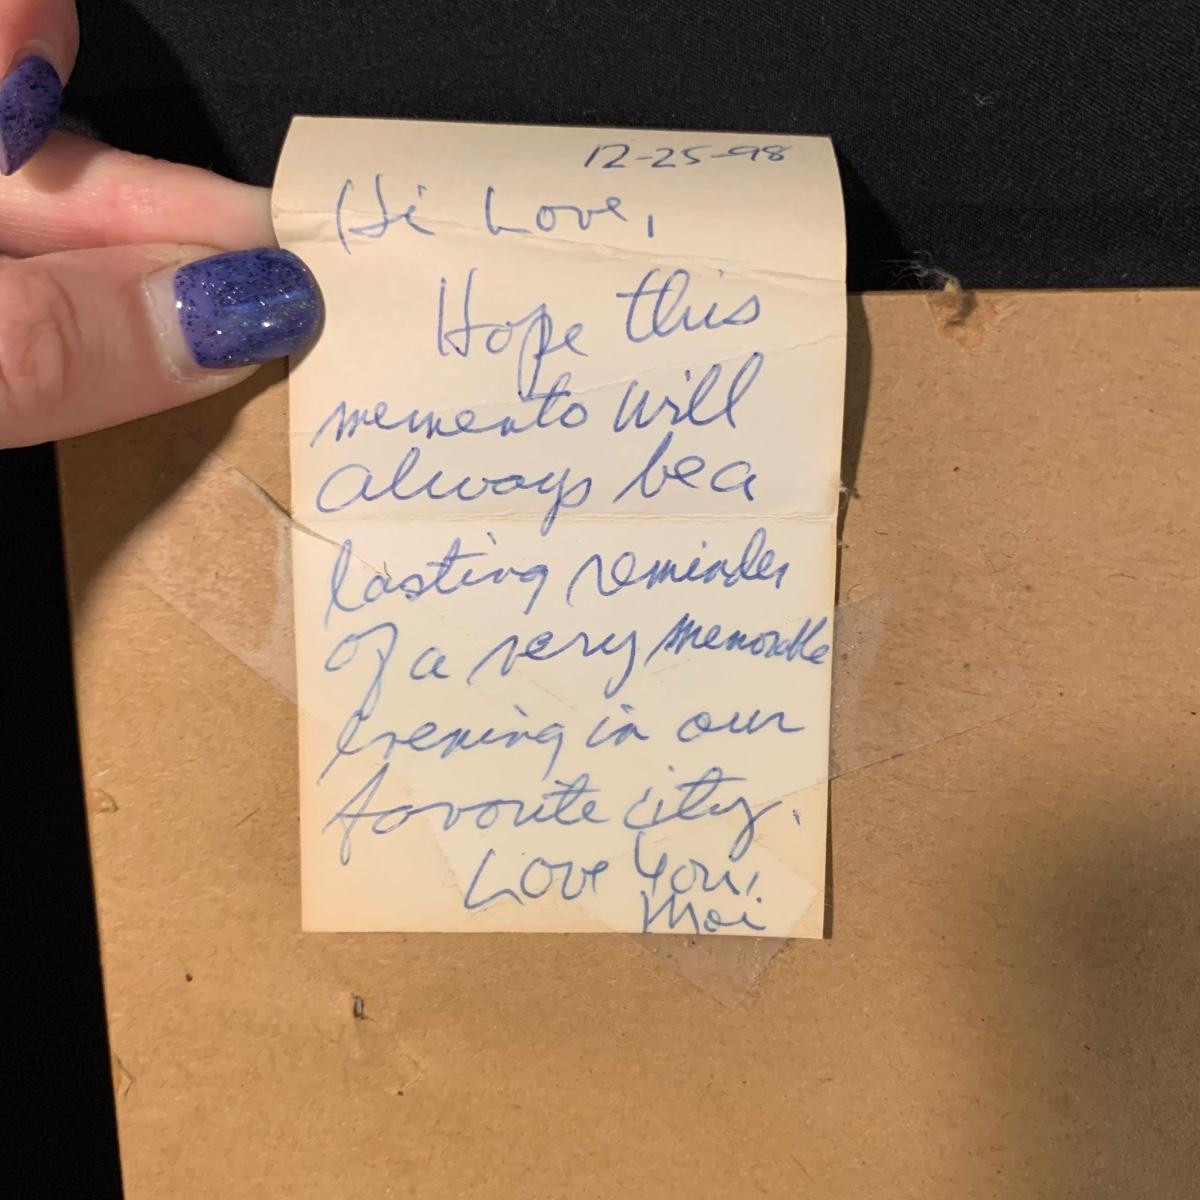 12-25-98
Hi Love,
Hope this
memento will
always be a
lasting reminder
of a very memorable
Evening in our
favorite city.
Love You,
Moi